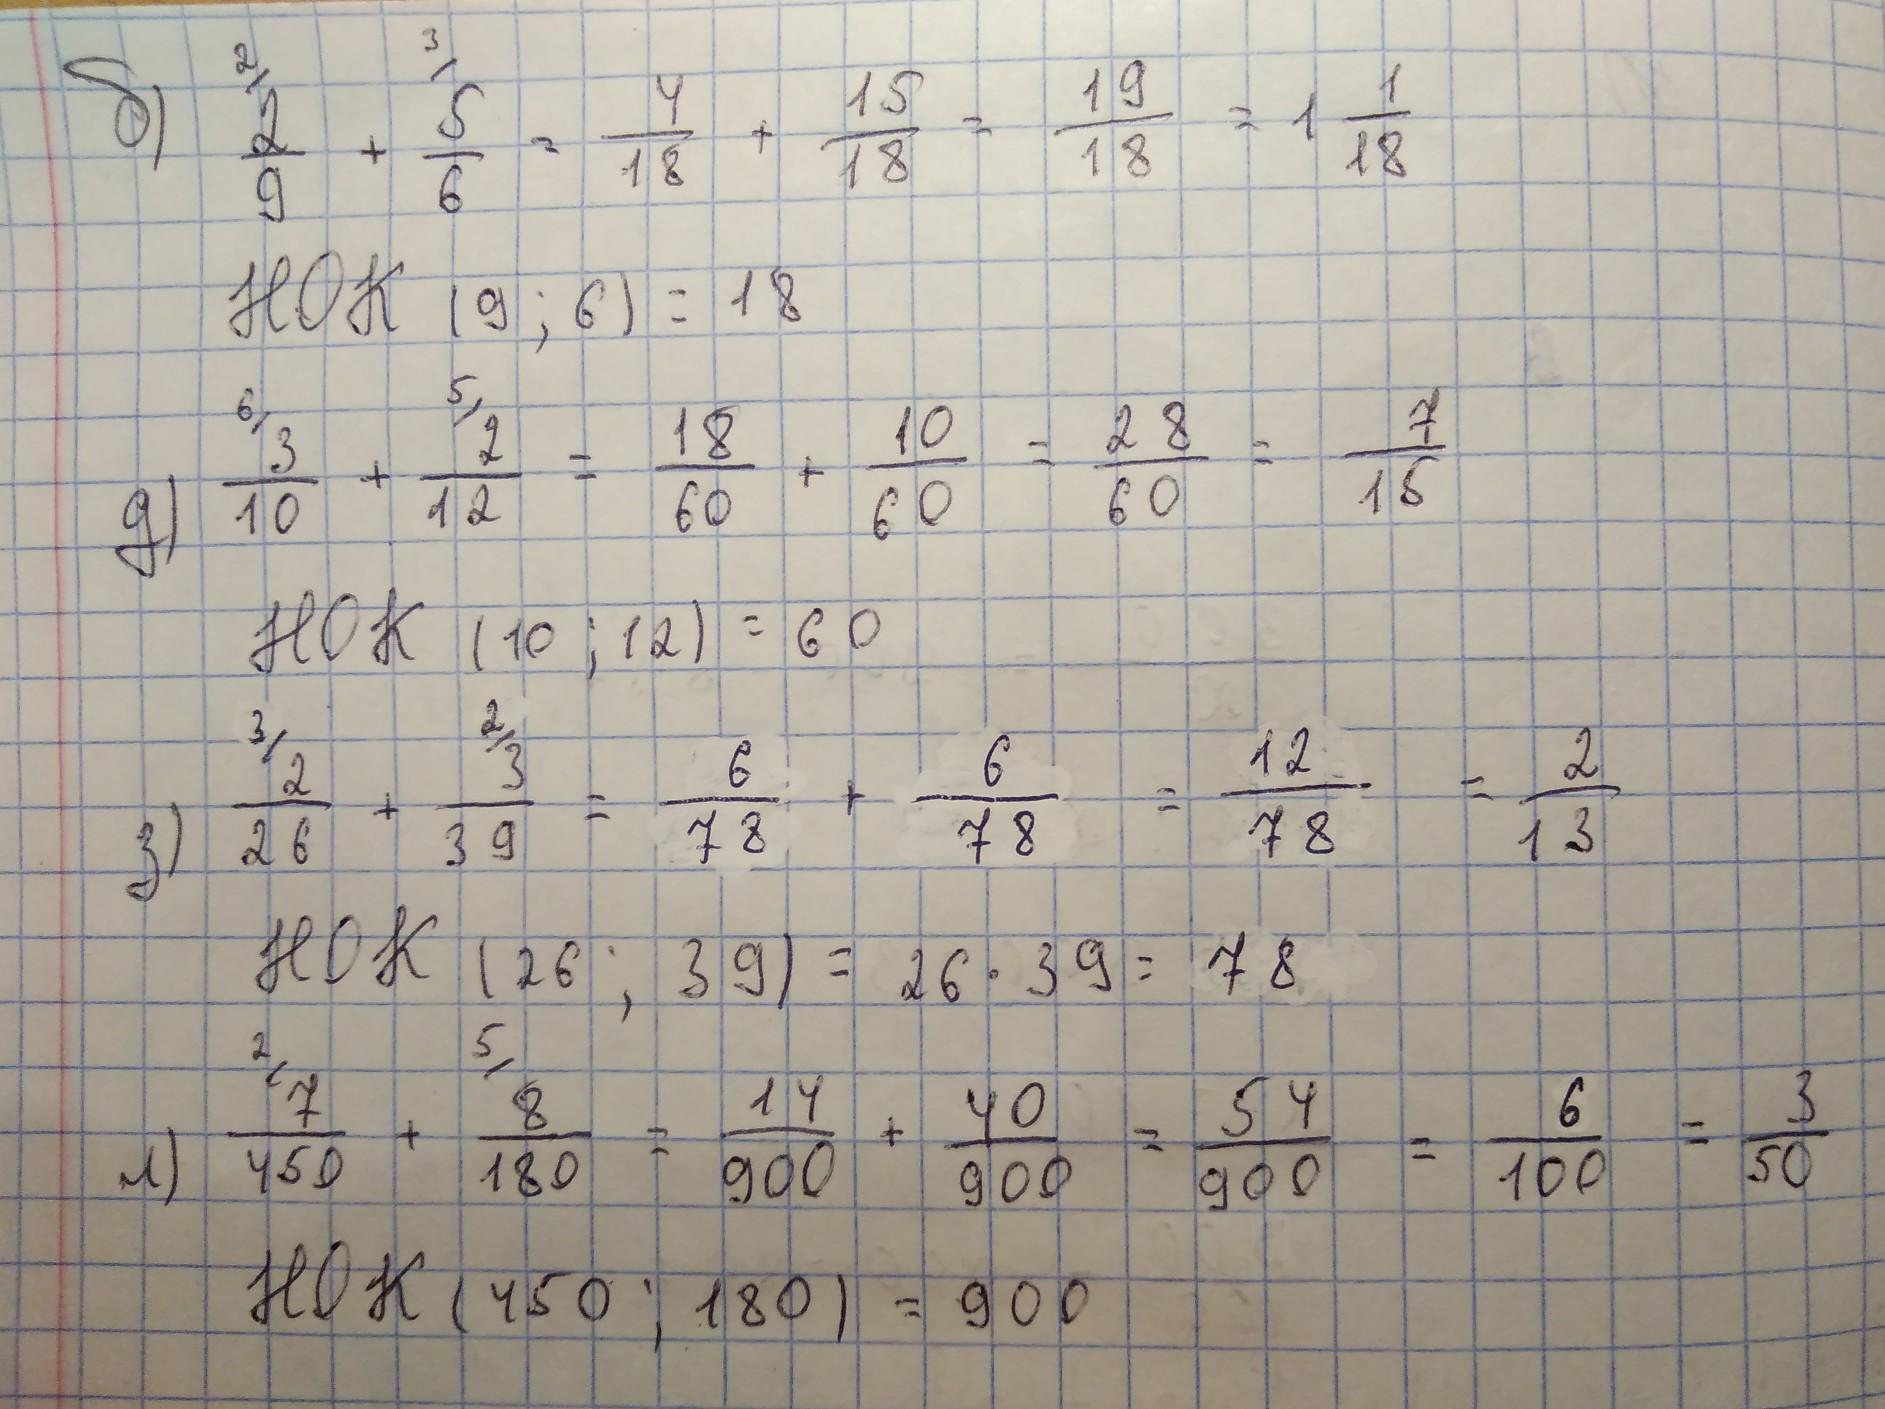 б) 2/ 2/9 + 3/ 5/6 = 4/18 + 15/18 = 19/18 = 1 1/18
НОК (9; 6) = 18
д) 6/ 3/10 + 5/ 2/12 = 18/60 + 10/60 = 28/60 = 7/15
НОК (10; 12) = 60
з) 3/ 2/26 + 2/ 3/39 = 6/78 + 6/78 = 12/78 = 2/13
НОК (26; 39) = 26 · 39 = 78
л) 2/ 7/450 + 5/ 8/180 = 14/900 + 40/900 = 54/900 = 6/100 = 3/50
НОК (450; 180) = 900